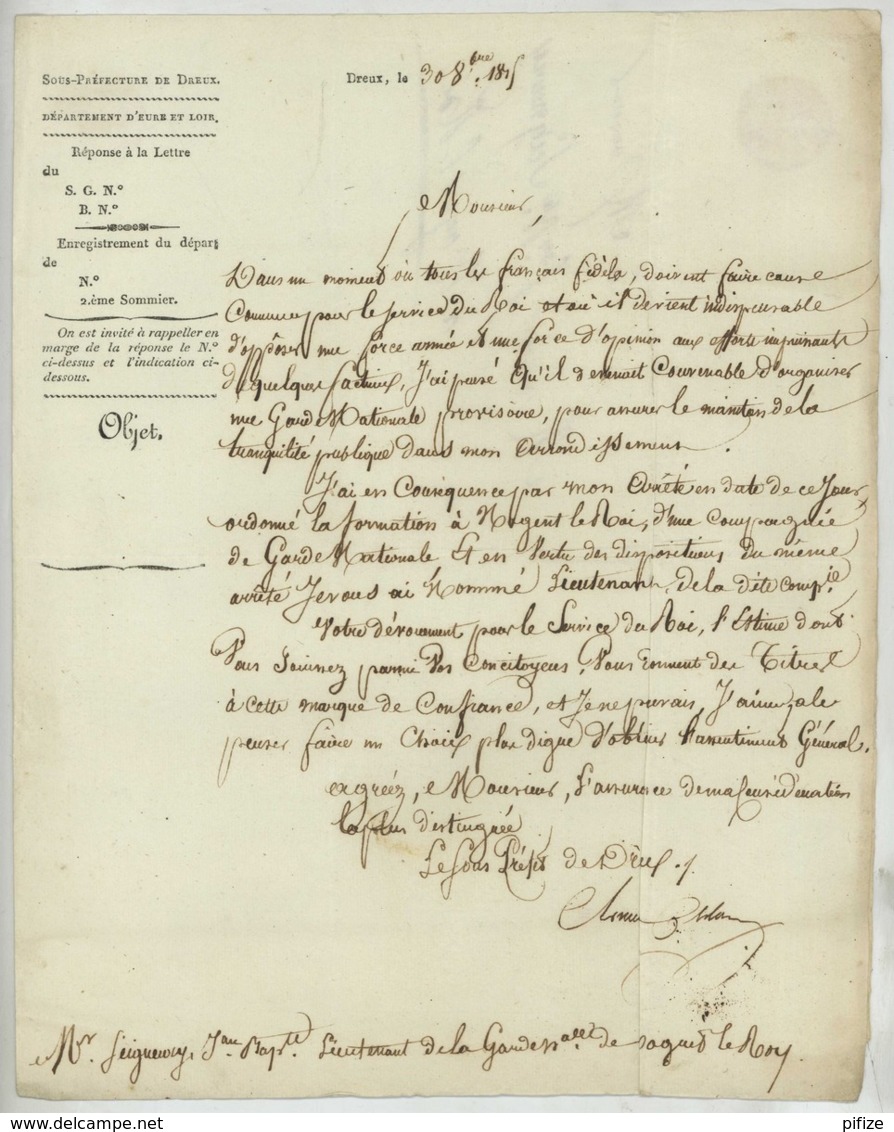 Sous-Préfecture de Dreux.
Département d'Eure et Loir.
Réponse à la Lettre
du
S. G. N.º
B. N.º
Enregistrement du départ
de
N.º
2.ème Sommier.
On est invité à rappeller en
marge de la réponse le N.º
ci-dessus et l'indication ci-
dessous.
Objet.
Dreux, le 30 8bre. 1815
Monsieur,
Dans un moment où tous les français fidels, doivent faire cause
Commune pour le service du Roi et où il devient indispensable
d'opposer une force armée et une force d'opinion aux efforts impuissants
de quelques factieux, J'ai pensé Qu'il devenait Convenable d'organiser
une Garde Nationale provisoire, pour assurer le maintien de la
tranquilité publique dans mon Arrondissement.
J'ai en Conséquence par mon Arrêté en date de ce Jour
ordonné la formation à Nogent le Roi, d'une Compagnie
de Garde Nationale Et en Vertu des dispositions du même
arrêté Je vous ai Nommé Lieutenant de la dite Compie.
Votre dévouement pour le Service du Roi, l'Estime dont
Vous Jouissez parmi Vos Concitoyens, Vous donnent des Titres
à cette marque de Confiance, et Je ne puvais, J'aime à le
penser faire un Choix plus digne d'obtenir l'assentiment Général.
agréez, Monsieur, l'assurance de ma Considération
la plus distinguée
Le Sous Préfet de Dreux.
Mr. Seigneury, Jean Bapte Lieutenant de la Garde Nalle de Nogent le Roy
pifize